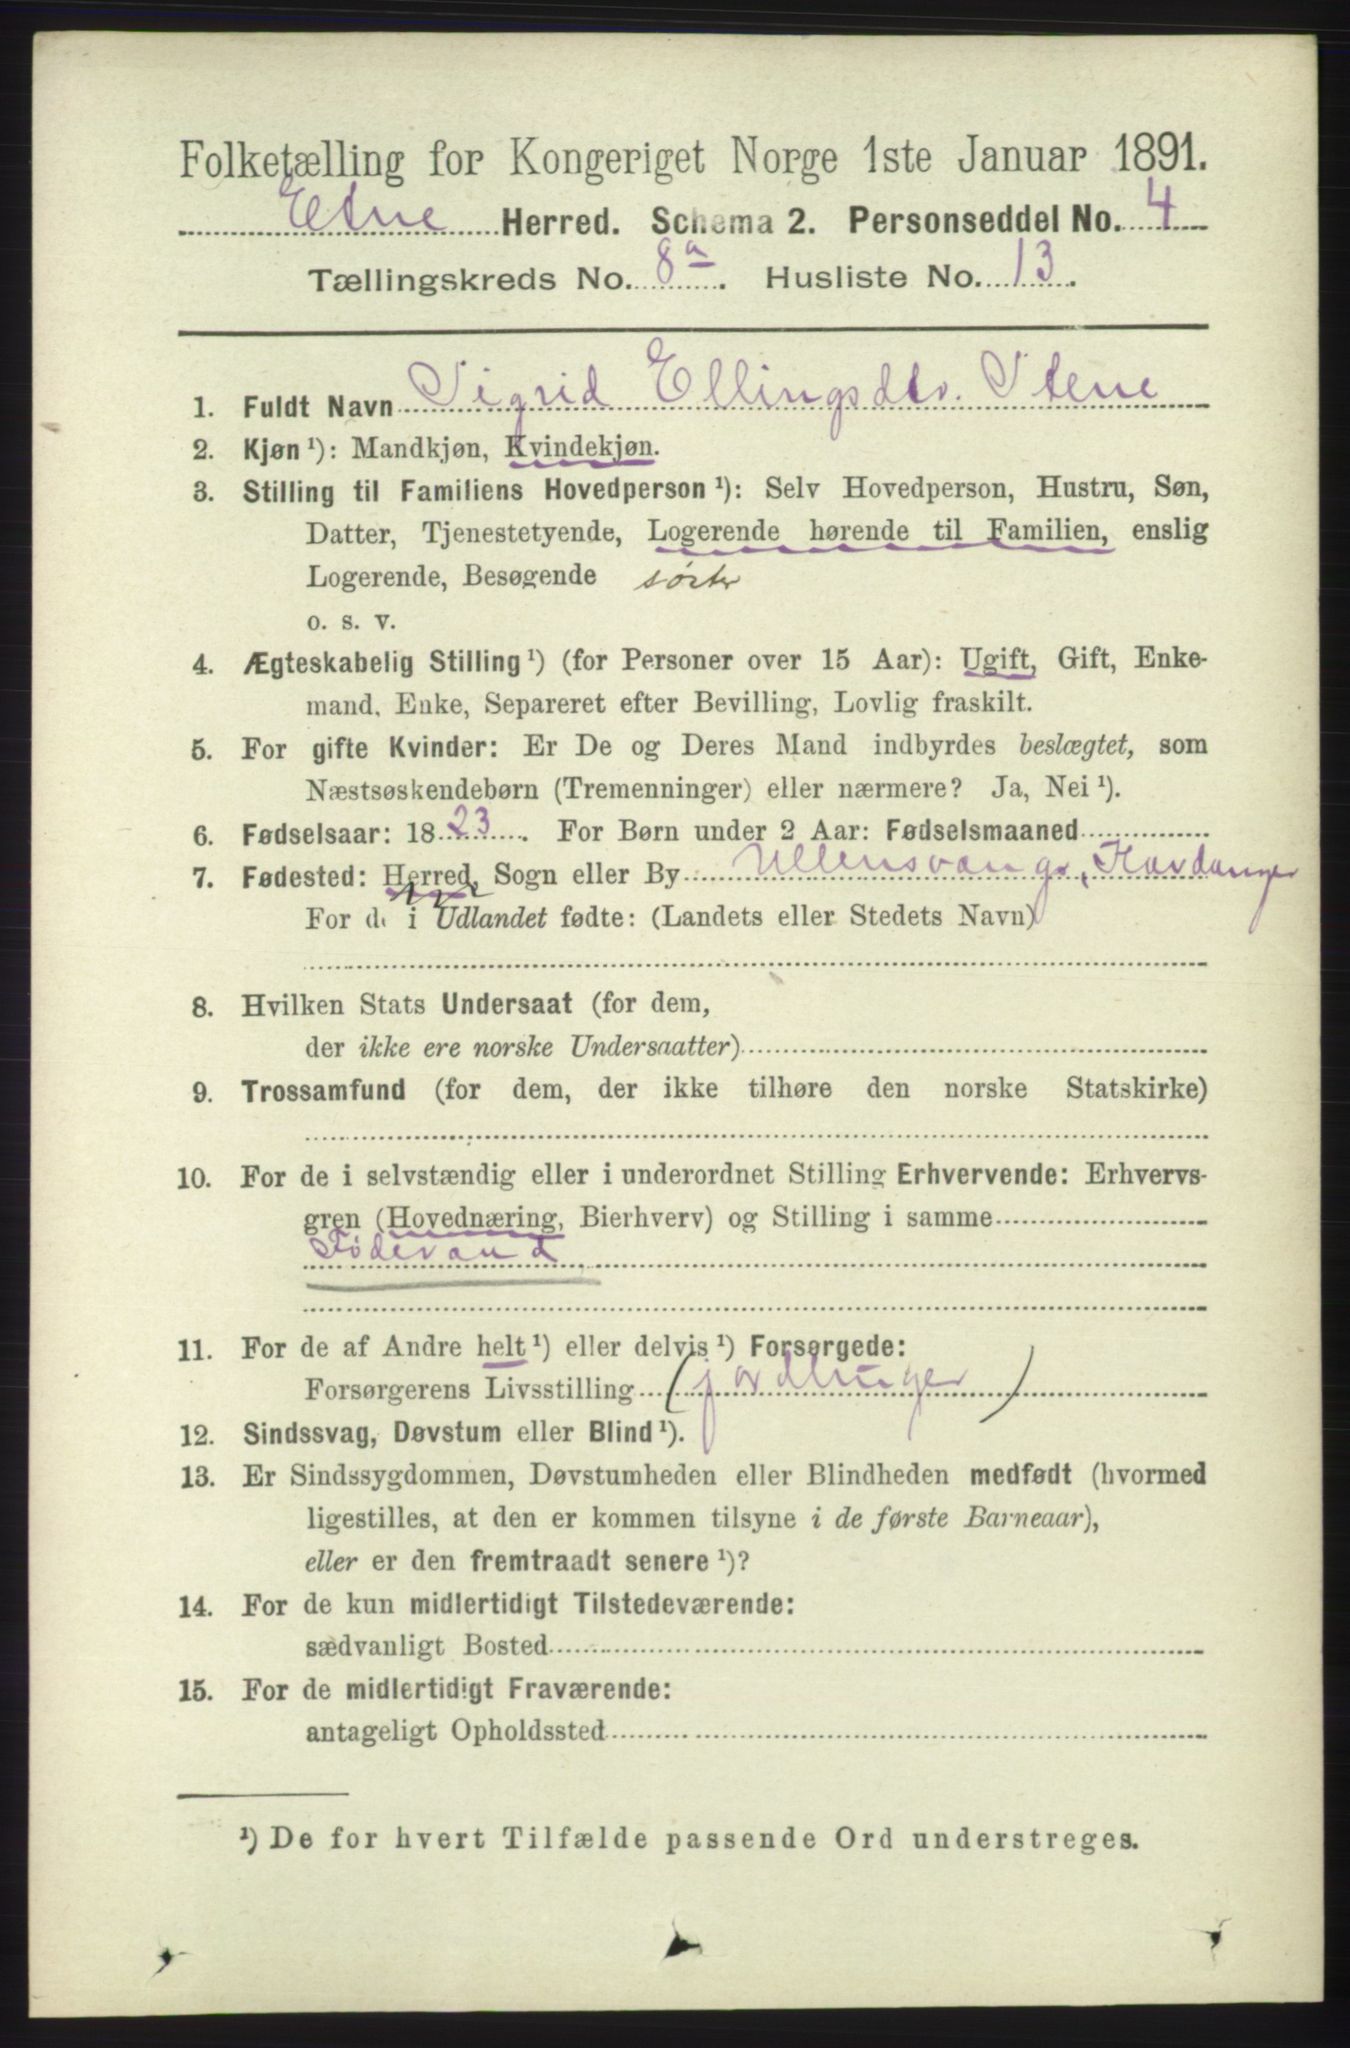 Folketælling for Kongeriget Norge 1ste Januar 1891.
Etne Herred. Schema 2. Personseddel No. 4
Tællingskreds No. 8a. Husliste No. 13.
1. Fuldt Navn Sigrid Ellingsdtr. Stene
2. Kjøn ¹): Mandkjøn, Kvindekjøn.
3. Stilling til Familiens Hovedperson ¹): Selv Hovedperson, Hustru, Søn,
Datter, Tjenestetyende, Logerende hørende til Familien, enslig
Logerende, Besøgende
o. s. v.
4. Ægteskabelig Stilling ¹) (for Personer over 15 Aar): Ugift, Gift, Enke-
mand, Enke, Separeret efter Bevilling, Lovlig fraskilt.
5. For gifte Kvinder: Er De og Deres Mand indbyrdes beslægtet, som
Næstsøskendebørn (Tremenninger) eller nærmere? Ja, Nei ¹).
6. Fødselsaar: 1823. For Børn under 2 Aar: Fødselsmaaned
7. Fødested: Herred, Sogn eller By Ullensvang, Hardanger
For de i Udlandet fødte: (Landets eller Stedets Navn)
8. Hvilken Stats Undersaat (for dem,
der ikke ere norske Undersaatter)
9. Trossamfund (for dem, der ikke tilhøre den norske Statskirke)
10. For de i selvstændig eller i underordnet Stilling Erhvervende: Erhvervs-
gren (Hovednæring, Bierhverv) og Stilling i samme
Føderaad
11. For de af Andre helt ¹) eller delvis ¹) Forsørgede:
Forsørgerens Livsstilling (jordbruger)
12. Sindssvag, Døvstum eller Blind ¹).
13. Er Sindssygdommen, Døvstumheden eller Blindheden medfødt (hvormed
ligestilles, at den er kommen tilsyne i de første Barneaar),
eller er den fremtraadt senere ¹)?
14. For de kun midlertidigt Tilstedeværende:
sædvanligt Bosted
15. For de midlertidigt Fraværende:
antageligt Opholdssted
¹) De for hvert Tilfælde passende Ord understreges.